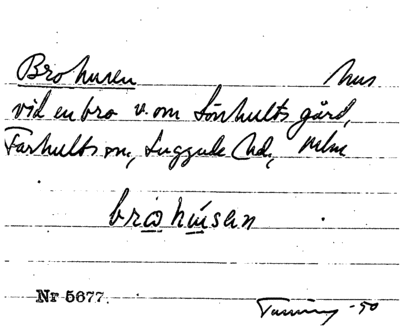 Brohusen hus
vid en bro v. om Sönhults gård,
Farhults sn, Luggude hd, Mlm
brohusen
Nr 5677. -50